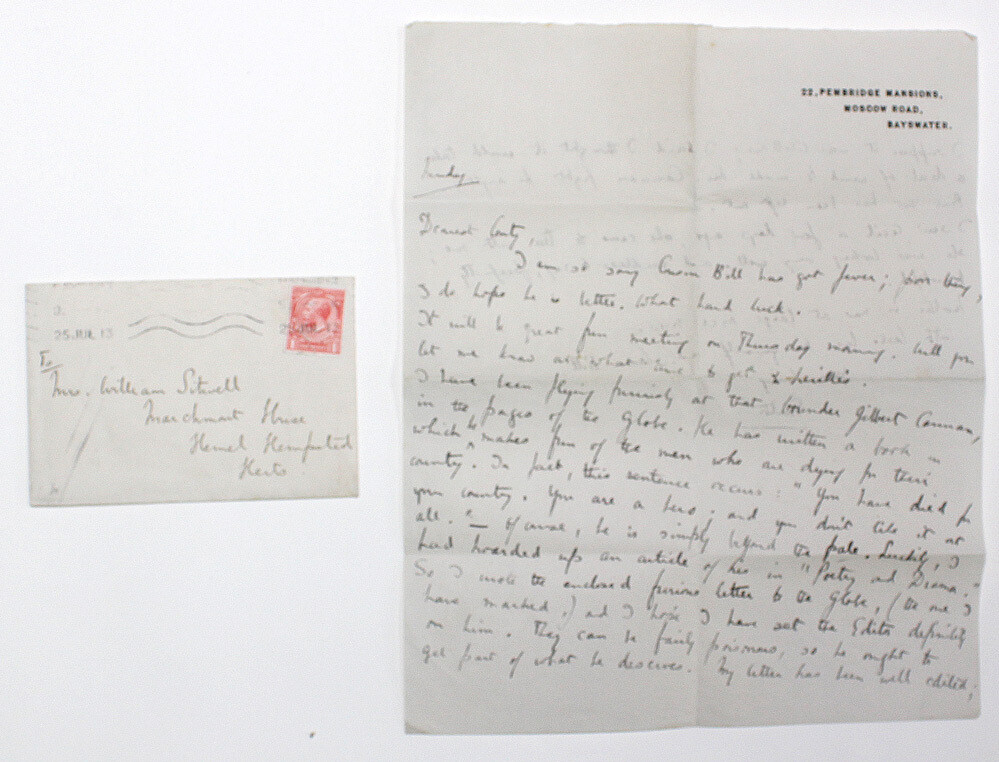 25 JUL 13
To
Mrs. William Sitwell
Marchmont House
Hemel Hempsted
Herts
22, PEMBRIDGE MANSIONS,
MOSCOW ROAD,
BAYSWATER.
Sunday
Dearest Aunty,
I am so sorry Cousin Bill has got fever; poor thing,
I do hope he is better. What hard luck.
It will be great fun meeting on Thursday morning. Will you
let me know at what time to get to
I have been flying furiously at that bounder Gilbert Cannan,
in the pages of the Globe. He has written a book in
which he makes fun of the men who are dying for their
country. In fact, this sentence occurs: "You have died for
your country. You are a hero. and you don't like it at
all." – Of course, he is simply beyond the pale. Luckily, I
had hoarded up an article of his in "Poetry and Drama."
So I wrote the enclosed furious letter to the Globe, (the one I
have marked,) and I hope I have set the Editor definitely
on him. They can be fairly poisonous, so he ought to
get part of what he deserves. My letter has been well edited;